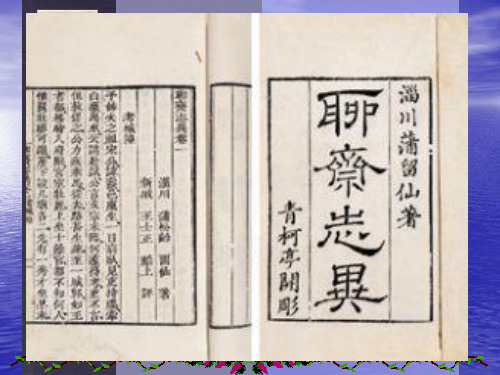 淄川蒲留仙著
聊齋志異
青柯亭開彫
聊齋志異卷一
淄川 蒲松齡 留仙 著
新城 王士正 貽上 評
考城隍
予姊丈之祖宋公諱燾邑廩生一日病臥見吏持牒牽
白顛馬來云請赴試公言文宗未臨何遽得考吏不言
但敦促之公力疾乘馬從去路甚生疎至一城郭如王
者都移時入府廨宮室壯麗上坐十餘官都不知何人
惟關壯繆可識簷下設几墩各二先有一秀才坐其末